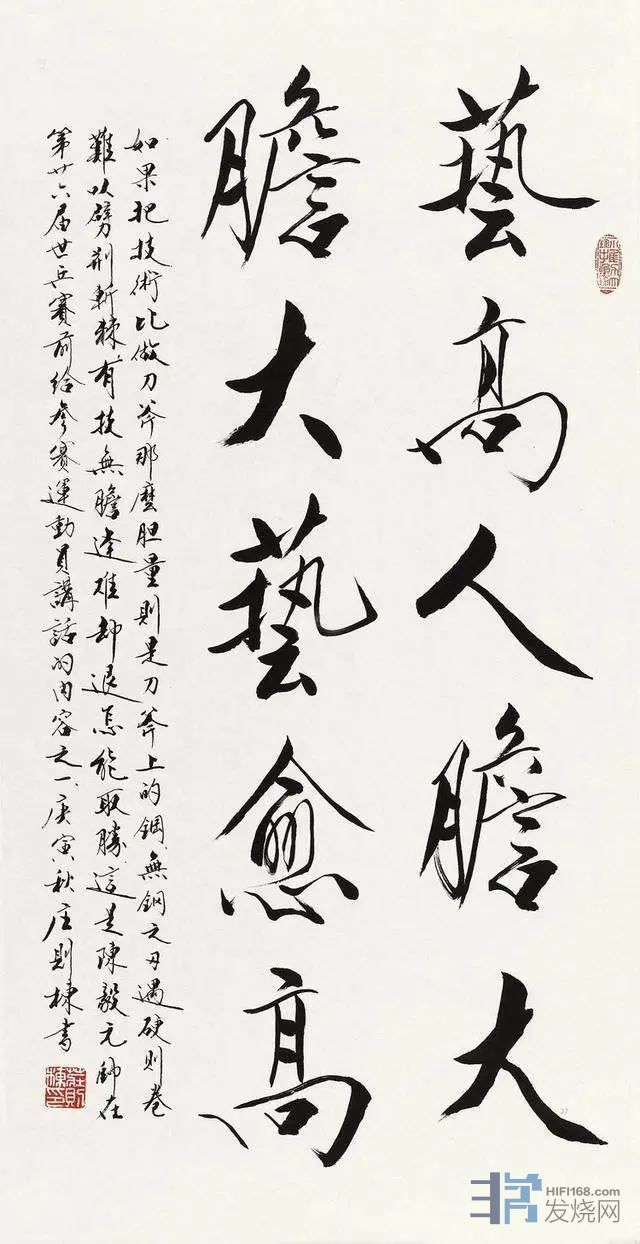 藝高人膽大
膽大藝愈高
如果把技術比做刀斧那麼胆量則是刀斧上的鋼無鋼之刃遇硬則卷
難以劈荆斬棘有技無膽逢难却退怎能取勝這是陳毅元帥在
第廿六届世乒賽前给參賽運動員講話的内容之一庚寅秋庄則棟書
莊則棟印
HIFI168.com
发烧网